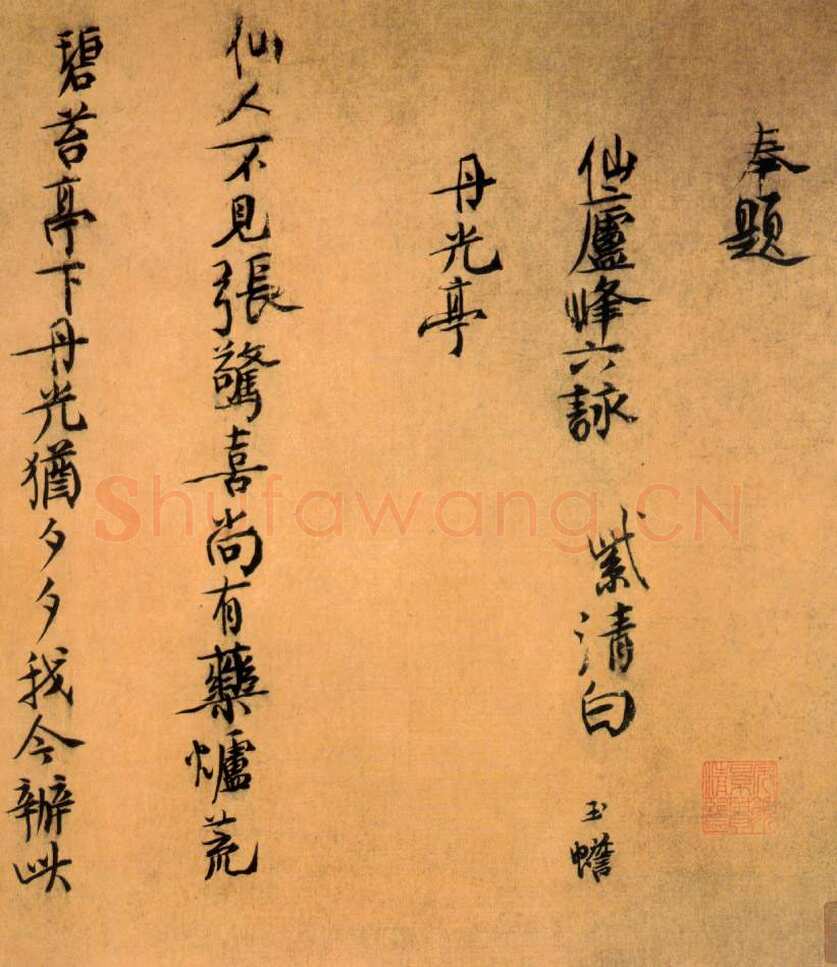 奉題
仙廬峰六詠 紫清白玉蟾
丹光亭
仙人不見張驚喜尚有藥爐荒
碧苔亭下丹光猶夕夕我今辦此
Shufawang.CN